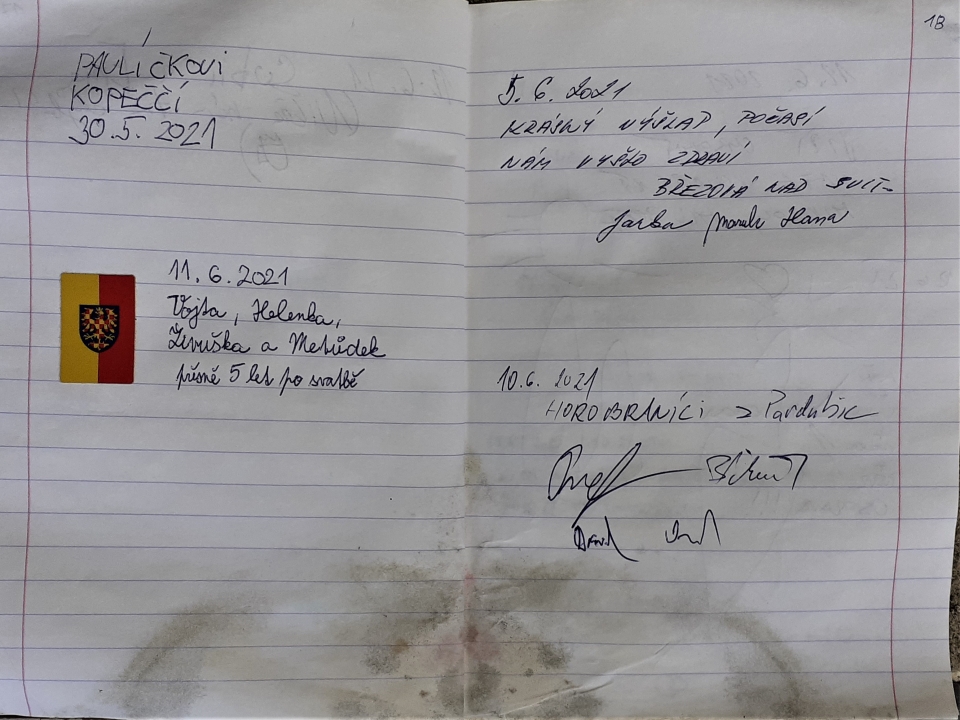 PAULÍČKOVI
KOPEČČÍ
30.5. 2021
11. 6. 2021
Vojta, Helenka,
Liduška a Metůdek
přesně 5 let po svatbě
1B
5. 6. 2021
KRÁSNÝ VÝŠLAP, POČASÍ
NÁM VYŠLO ZDRAVÍ
BŘEZOVÁ NAD SVIT-
Jarka Marek Hana
10.6. 2021
HOROBRANÍCI z Pardubic
David